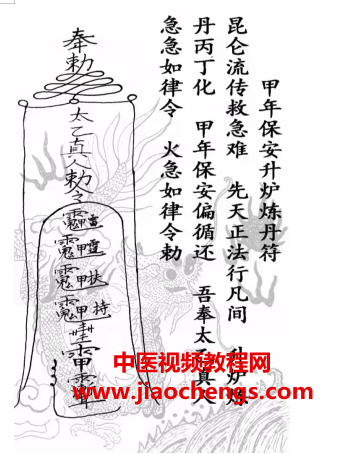 甲年保安升炉炼丹符
昆仑流传救急难 先天正法行凡间 炉炼
丹丙丁化 甲年保安偏循还 吾奉太
急急如律令 火急如律令敕
奉敕
太乙真人敕令
甲
甲扶
甲持
中医视频教程网
www.jiaochengs.com